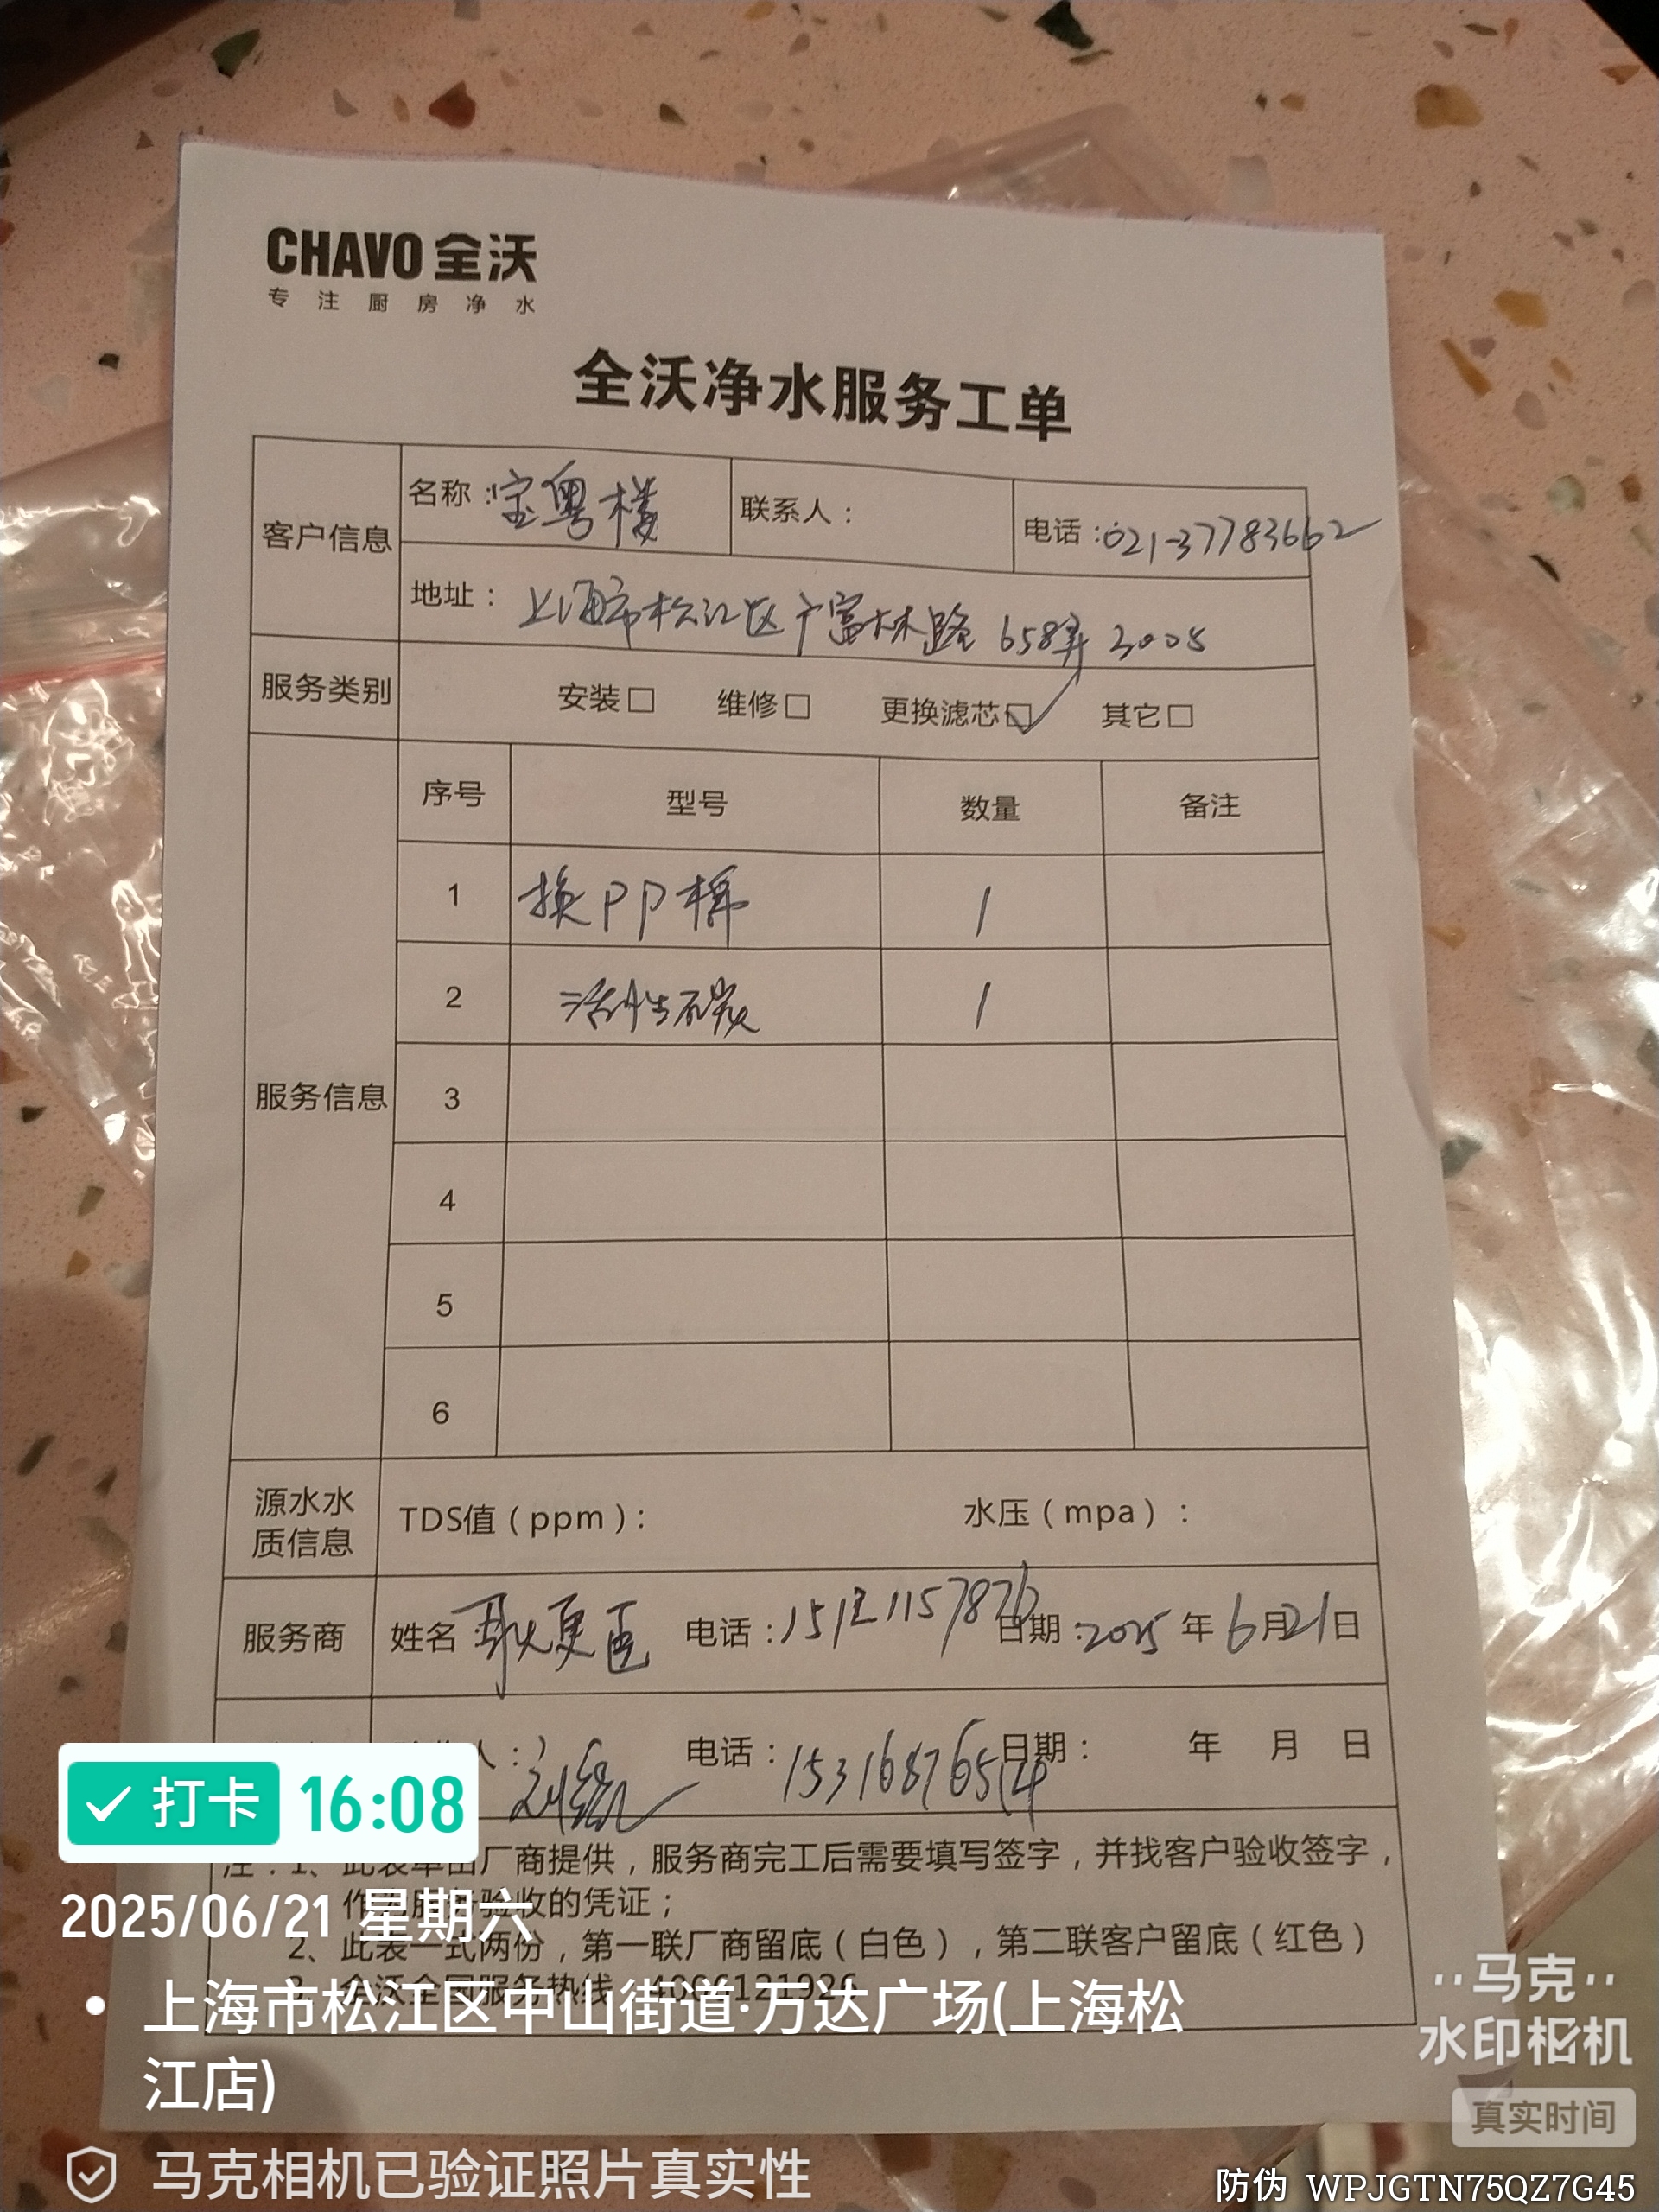 CHAVO 全沃
专注厨房净水
全沃净水服务工单
客户信息
名称：宝粤楼
联系人：
电话：021-37783662
地址：上海市松江区广富林路658弄3005
服务类别
安装□ 维修□ 更换滤芯☑ 其它□
服务信息
序号 型号 数量 备注
1 换PP棉 1
2 活性碳 1
3
4
5
6
源水水质信息
TDS值（ppm）：
水压（mpa）：
服务商
姓名
电话：
日期：2025年6月21日
人：刘
电话：15316876514
日期： 年 月 日
注：1、此表单由厂商提供，服务商完工后需要填写签字，并找客户验收签字，
验收的凭证；
2、此表一式两份，第一联厂商留底（白色），第二联客户留底（红色）
3、全沃全国服务热线 4006121926
打卡 16:08
2025/06/21 星期六
上海市松江区中山街道·万达广场(上海松
江店)
马克相机已验证照片真实性
马克
水印相机
真实时间
防伪 WPJGTN75QZ7G45